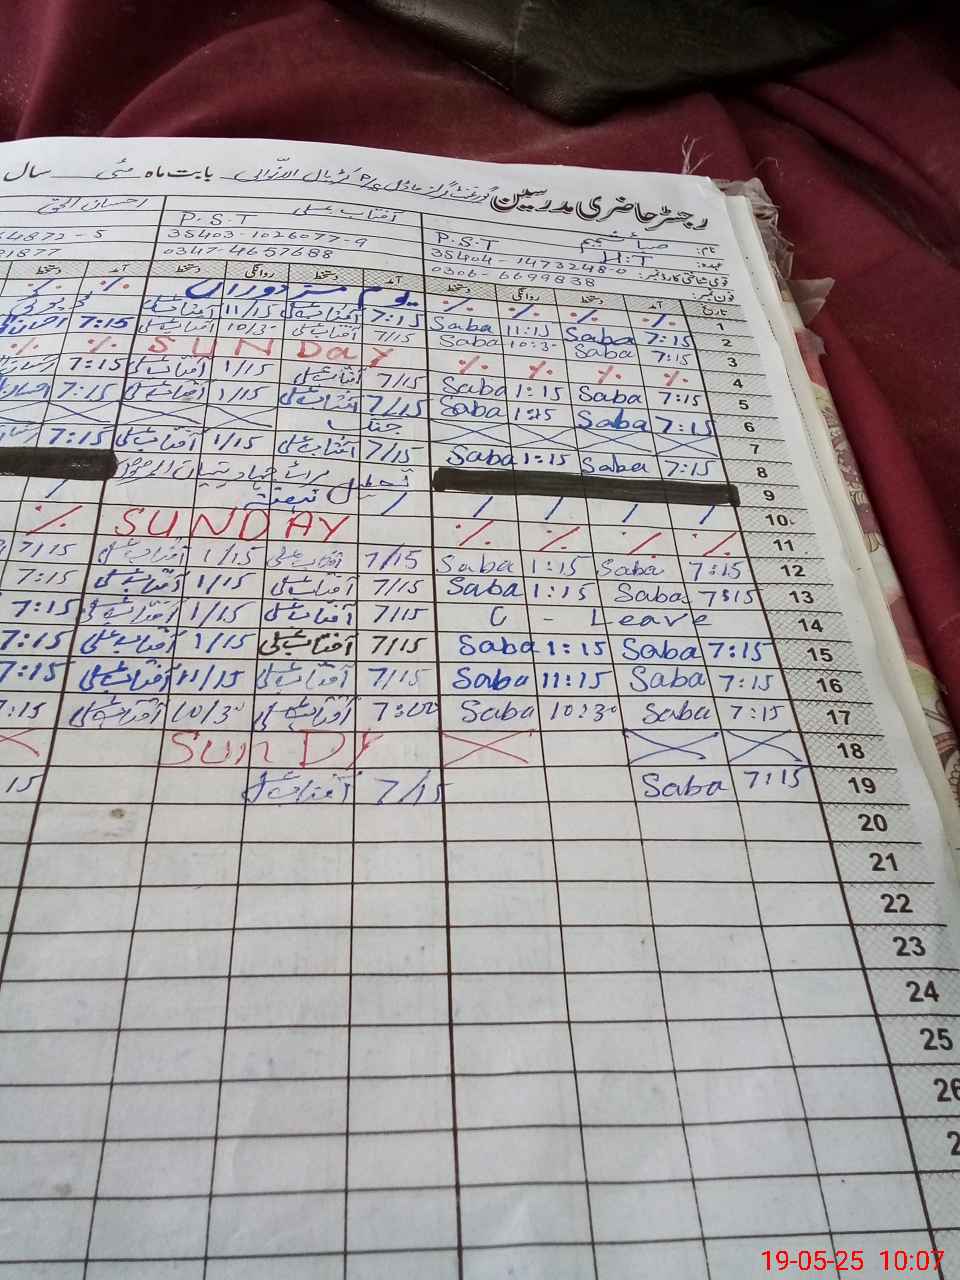 رجسٹر حاضری مدرسین گورنمنٹ گرلز ماڈل P/S بابت ماہ مئی سال
نام: صائمہ H.T P.S.T آفتاب علی P.S.T احسان الحق
عہدہ:
قومی شناختی کارڈ نمبر: 35404-1473248-0 35403-1026077-9 54872-5
فون نمبر: 0306-6699838 0347-4657688 91877
تاریخ آمد دستخط روانگی دستخط آمد دستخط روانگی دستخط آمد دستخط
1 % % % % یوم مزدوراں % %
2 7:15 Saba 11:15 Saba 7:15 آفتاب علی 11/15 آفتاب علی
3 7:15 Saba 10:30 Saba 7/15 آفتاب علی 10/30 آفتاب علی 7:15
4 % % % % SUNDaY % %
5 7:15 Saba 1:15 Saba 7/15 آفتاب علی 1/15 آفتاب علی 7:15
6 7:15 Saba 1:15 Saba 7/15 آفتاب علی 1/15 آفتاب علی 7:15
7 جنگ
8 7:15 Saba 1:15 Saba 7/15 آفتاب علی 1/15 آفتاب علی 7:15
9 تعطیل
10 / / / / / ہفتہ /
11 % % % % SUNDAY %
12 7:15 Saba 1:15 Saba 7/15 آفتاب علی 1/15 آفتاب علی 7/15
13 7:15 Saba 1:15 Saba 7/15 آفتاب علی 1/15 آفتاب علی 7:15
14 C - Leave 7/15 آفتاب علی 1/15 آفتاب علی 7:15
15 7:15 Saba 1:15 Saba 7/15 آفتاب علی 1/15 آفتاب علی 7:15
16 7:15 Saba 11:15 Saba 7/15 آفتاب علی 11/15 آفتاب علی 7:15
17 7:15 Saba 10:30 Saba 7:00 آفتاب علی 10/30 آفتاب علی 7:15
18 SunDY
19 7:15 Saba 7/15 آفتاب علی 15
20
21
22
23
24
25
26
2
19-05-25 10:07